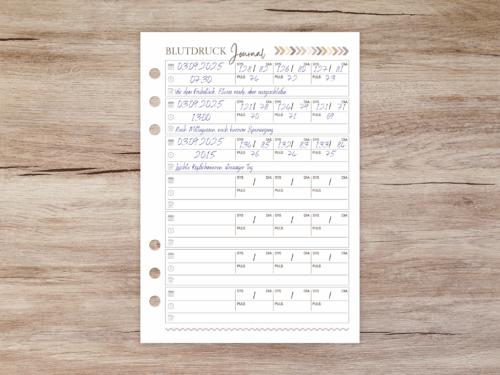 BLUTDRUCK Journal
03.09.2025 SYS 128 / 82 DIA SYS 126 / 80 DIA SYS 127 / 81 DIA
07:30 PULS 74 PULS 72 PULS 73
Vor dem Frühstück. Etwas müde, aber ausgeschlafen
03.09.2025 SYS 121 / 78 DIA SYS 124 / 79 DIA SYS 121 / 77 DIA
13:00 PULS 70 PULS 71 PULS 69
Nach Mittagessen, nach kurzem Spaziergang
03.09.2025 SYS 134 / 85 DIA SYS 132 / 83 DIA SYS 133 / 84 DIA
20:15 PULS 76 PULS 74 PULS 75
Leichte Kopfschmerzen, stressiger Tag
SYS / DIA SYS / DIA SYS / DIA
PULS PULS PULS
SYS / DIA SYS / DIA SYS / DIA
PULS PULS PULS
SYS / DIA SYS / DIA SYS / DIA
PULS PULS PULS
SYS / DIA SYS / DIA SYS / DIA
PULS PULS PULS